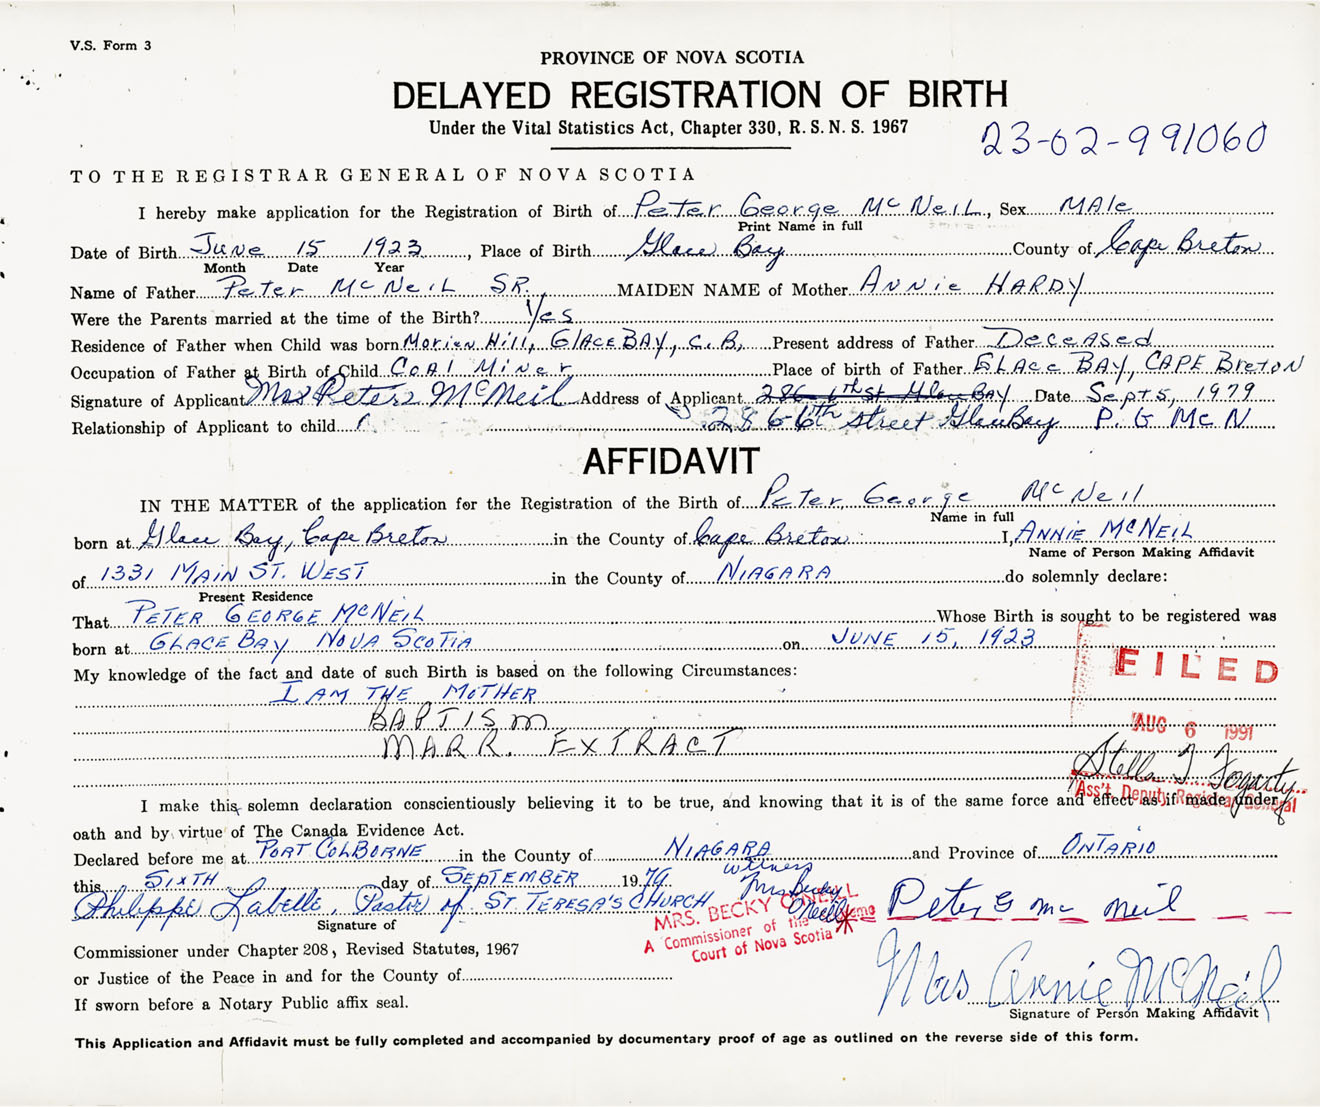 V.S. Form 3
PROVINCE OF NOVA SCOTIA
DELAYED REGISTRATION OF BIRTH
Under the Vital Statistics Act, Chapter 330, R.S.N.S. 1967
23-02-991060
TO THE REGISTRAR GENERAL OF NOVA SCOTIA
I hereby make application for the Registration of Birth of Peter George McNeil, Sex Male
Print Name in full
Date of Birth June 15 1923, Place of Birth Glace Bay County of Cape Breton
Month Date Year
Name of Father Peter McNeil SR. MAIDEN NAME of Mother Annie HARDY
Were the Parents married at the time of the Birth? Yes
Residence of Father when Child was born Morien Hill, Glace BAY, C.B. Present address of Father Deceased
Occupation of Father at Birth of Child Coal Miner Place of birth of Father Glace BAY, CAPE Breton
Signature of Applicant Mrs Peter McNeil Address of Applicant 286 6th St Glace BAY Date Sept 5, 1979
Relationship of Applicant to child 286 6th Street Glace Bay P. G McN
AFFIDAVIT
IN THE MATTER of the application for the Registration of the Birth of Peter George McNeil
Name in full
born at Glace Bay, Cape Breton in the County of Cape Breton I, ANNIE MCNEIL
Name of Person Making Affidavit
of 1331 MAIN ST. WEST in the County of NIAGARA do solemnly declare:
Present Residence
That PETER GEORGE MCNEIL Whose Birth is sought to be registered was
born at GLACE BAY NOVA SCOTIA on JUNE 15, 1923
My knowledge of the fact and date of such Birth is based on the following Circumstances:
FILED
I AM THE MOTHER
BAPTISM
AUG 6 1991
MARR. EXTRACT
Stella J Fogarty
Ass't Deputy Registrar General
I make this solemn declaration conscientiously believing it to be true, and knowing that it is of the same force and effect as if made under
oath and by virtue of The Canada Evidence Act.
Declared before me at PORT COLBORNE in the County of NIAGARA and Province of ONTARIO
this SIXTH day of SEPTEMBER 1979 witness
Philippe Labelle, Pastor of ST. TERESA'S CHURCH Mrs Becky O'Neill Peter G McNeil
Signature of
MRS. BECKY O'NEILL
A Commissioner of the Supreme
Court of Nova Scotia
Commissioner under Chapter 208, Revised Statutes, 1967
or Justice of the Peace in and for the County of
Mrs Annie McNeil
If sworn before a Notary Public affix seal.
Signature of Person Making Affidavit
This Application and Affidavit must be fully completed and accompanied by documentary proof of age as outlined on the reverse side of this form.